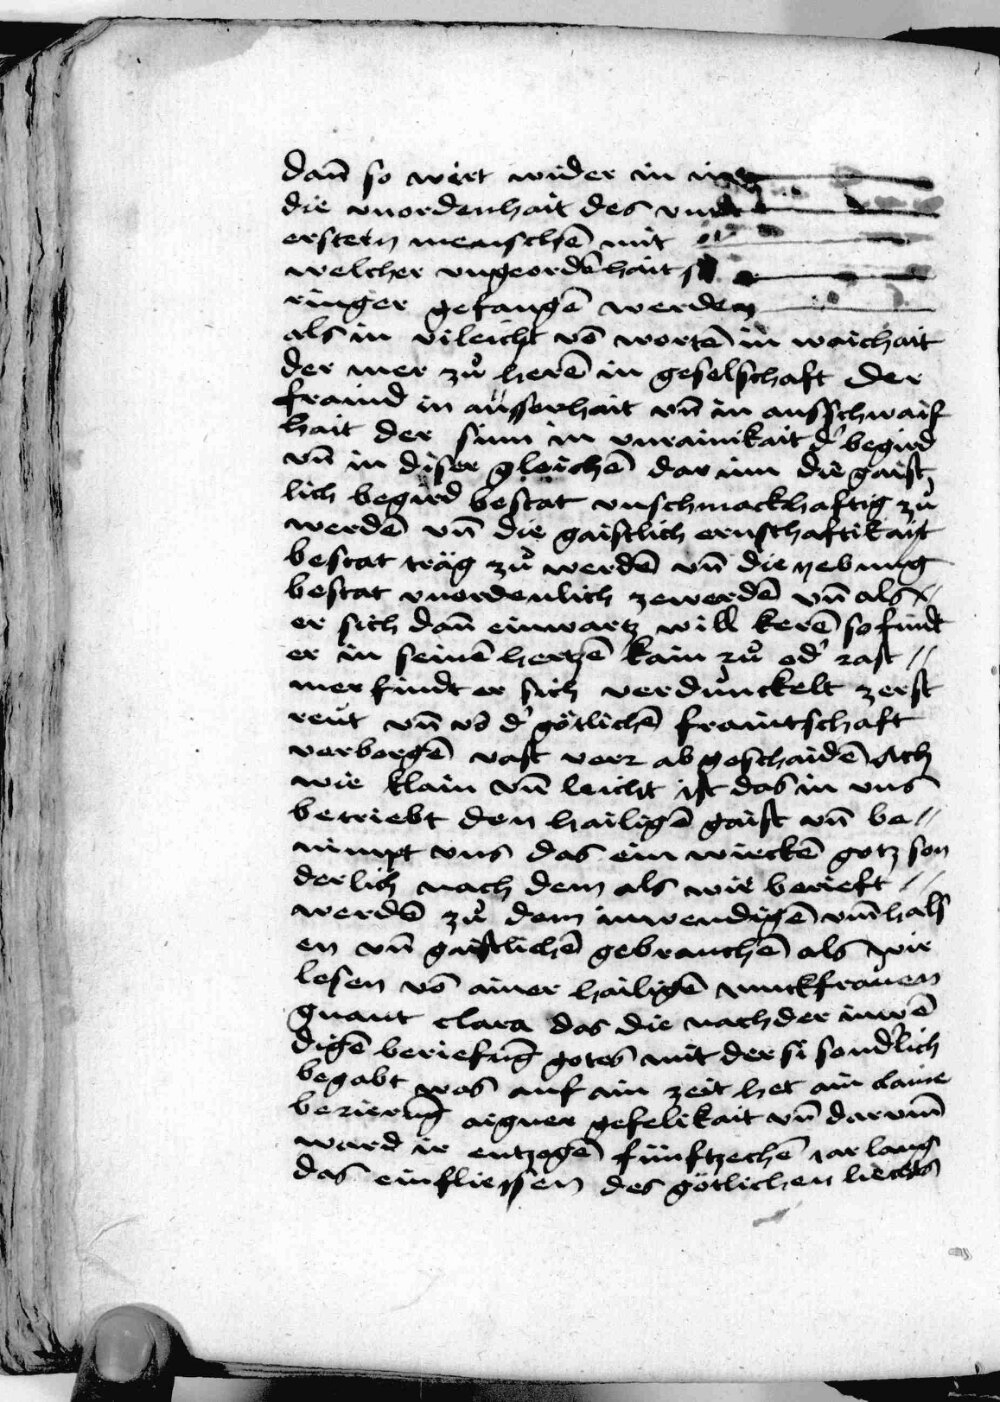 dañ so wirt wider in
die vnordenhait des
erstetn menschē mit
welcher vngeordēhait
ringer gefangē werden
als in vileicht vō wortē in waichait
der mer zů herē in geselschaft der
fraind in ausserhait vñ in ausschwaif
hait der sinn in vnrainikait d' begird
vñ in diser gleichē dar inn die gaist
lich begird bestat vnschmackhaftig zů
werdē vñ die gaistlich ernsthaftikait
bestat träg zů werdē vñ die yebung
bestat vnordenlich zewerdē vñ als
er sich dañ einwartz will kerē so findt
er in seinē hertzē kain rů od' rast //
mer findt er sich verdunckelt zerst
reut vñ vō d' götlichē fraintschaft
verborgē vast verr ab geschaidē Ach
wie klain vñ leicht ist das in vns
betriebt den hailigē gaist vñ be //
nimpt vns das ein wirckē gotz son
derlich nach dem als wir berieft //
werdē zů dem inwendigē vm̄hals
en vñ gaistlichē gebrauchē als wir
lesen vō ainer hailigē iunckfrauen
gnant clara das die nach der inwē
digē beriefūg gotes mit der si sond'lich
begabt was auf ain zeit het ain claine
berierūg aigner gefelikait vñ darum̄
ward ir entzogē fünftzechē iar lang
das einfliessen des götlichen liechts